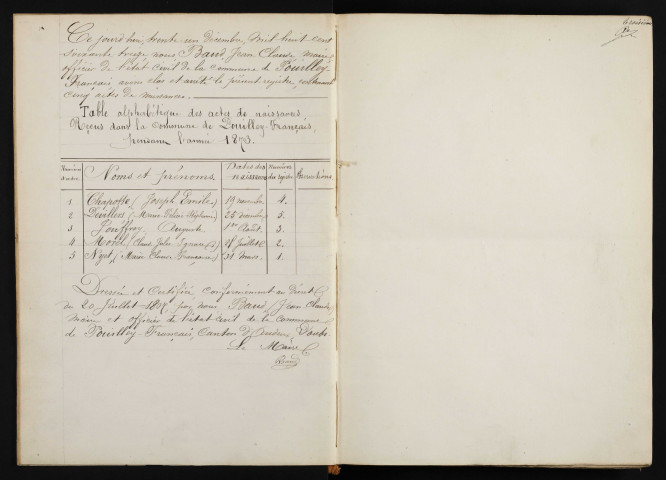 Ce jourd'hui, trente un Décembre, mil huit cent
soixante treize nous Baud Jean Claude maire
officier de l'état civil de la commune de Pouilley-
Français avons clos et arrêté le présent registre, contenant
cinq actes de naissances.
Table alphabétique des actes de naissances
Reçus dans la commune de Pouilley-Français,
pendant l'année 1873.
Numéros d'ordre | Noms et prénoms. | Dates des naissances | Numéros du registre |
1 | (Joseph Emile) | 19 novembre | 4.
2 | Devillers | 25 décembre | 5.
3 | Jouffroy, Auguste | 1er Août | 3.
4 | Morel, (Claude Jules Ignace) | Juillet | 2.
5 | (Marie Claude Françoise) | 31 mars. | 1.
Dressée et Certifiée conformément au Décret
du 20 Juillet 1807, par nous Baud, Jean Claude,
maire et officier de l'état civil de la commune
de Pouilley-Français, Canton d'Audeux, Doubs.
Le Maire
Baud